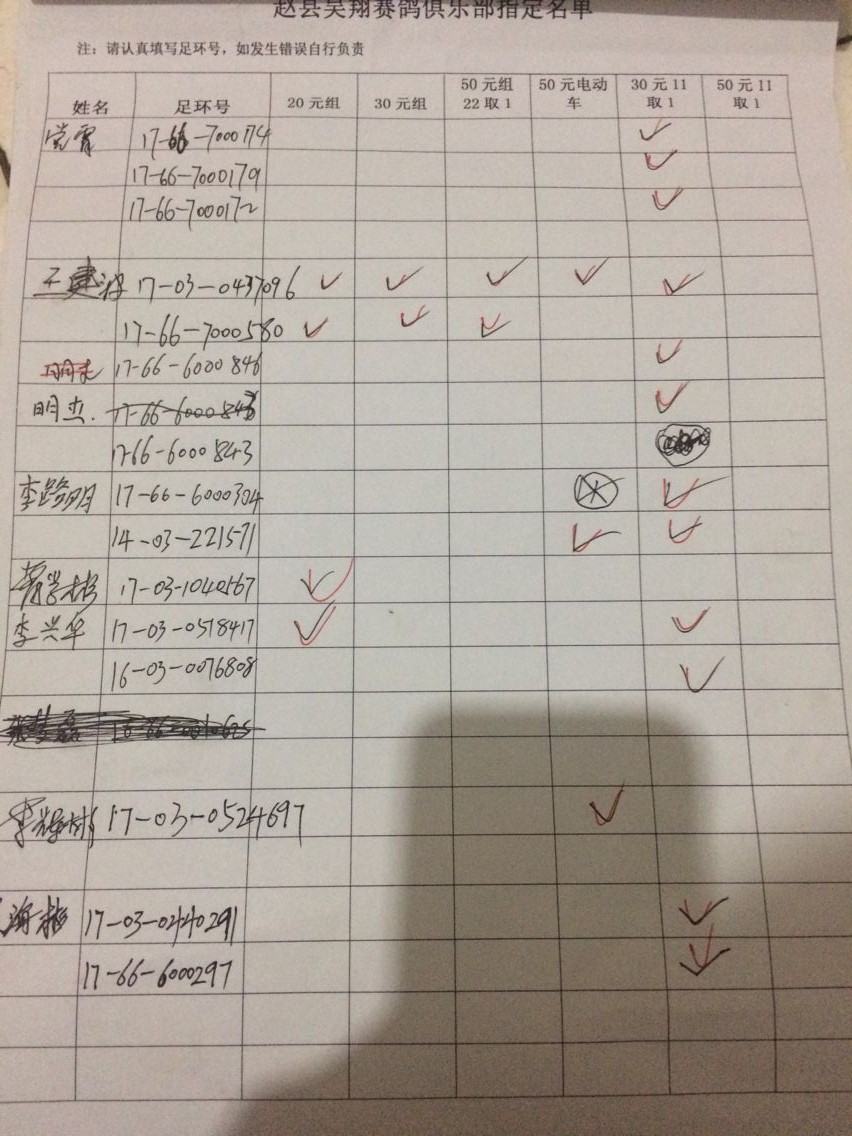 赵县昊翔赛鸽俱乐部指定名单
注：请认真填写足环号，如发生错误自行负责
姓名 足环号 20元组 30元组 50元组22取1 50元电动车 30元11取1 50元11取1
党霄 17-66-7000174 ✓
17-66-7000179 ✓
17-66-7000172 ✓
王建波 17-03-0437096 ✓ ✓ ✓ ✓ ✓
17-66-7000580 ✓ ✓ ✓
17-66-6000846 ✓
明杰. 17-66-6000843 ✓
17-66-6000843
李路明 17-66-6000304 ✓
14-03-221571 ✓ ✓
17-03-1040567 ✓
李兴华 17-03-0518417 ✓ ✓
16-03-0076808 ✓
17-03-0524697 ✓
海彬 17-03-0440291 ✓
17-66-6000297 ✓